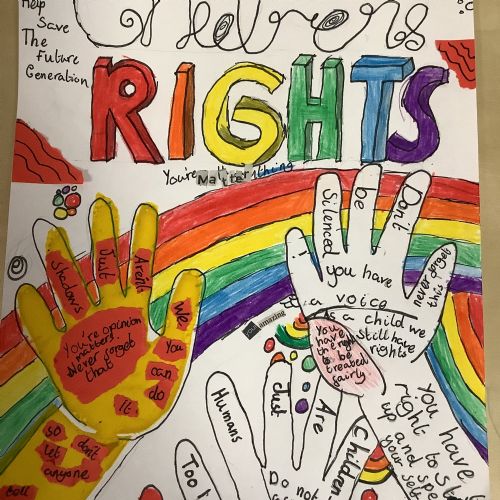 Help
Save
The
future
Generation
Childrens
RIGHTS
You're Matter
Shadows
Just
Arent
We
You're opinion
matters.
Never forget
that
You
can
do
it.
so don't
let
anyone
tell
Silenced
be
Dont
never forget
this
you have
a voice
As a child we
still have
rights
You
have
the right
to be
treated
fairly
amazing
You have
right to
up and
your
Too
Humans
Just
Are
Children